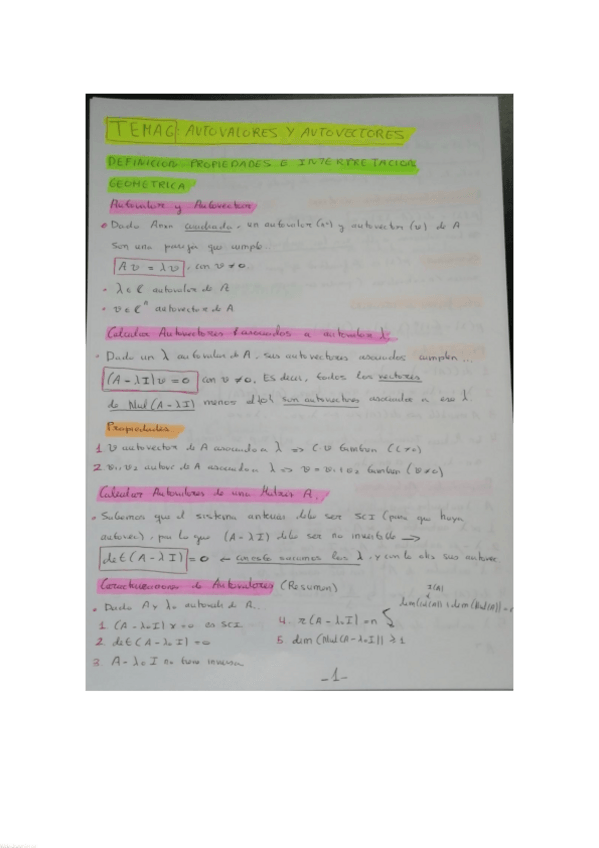 TEMA6: AUTOVALORES Y AUTOVECTORES
DEFINICION. PROPIEDADES E INTERPRETACION
GEOMETRICA
Autovalor y Autovector
• Dada Anxn cuadrada, un autovalor (λ) y autovector (v) de A
son una pareja que cumple
Av = λv, con v ≠ 0.
• λ ∈ C autovalor de A
• v ∈ Cⁿ autovector de A
Calcular Autovectores asociados a autovalor λ
• Dado un λ autovalor de A, sus autovectores asociados cumplen...
(A - λI)v = 0 con v ≠ 0. Es decir, todos los vectores
de Nul(A - λI) menos el son autovectores asociados a ese λ.
Propiedades.
1. v autovector de A asociado a λ => c·v tambien (c ≠ 0)
2. v1, v2 autovec de A asociado a λ => v = v1 + v2 tambien (v ≠ 0)
Calcular Autovalores de una Matriz A.
• Sabemos que el sistema anterior debe ser SCI (para que haya
autovec), por lo que (A - λI) debe ser no invertible →
det(A - λI) = 0 ← con este sacamos los λ, y con la otra sus autovec
Caracterizaciones de Autovalores (Resumen)
• Dada A y λ₀ autovalor de A...
1. (A - λ₀I)x = 0 es SCI
2. det(A - λ₀I) = 0
3. A - λ₀I no tiene inversa
4. r(A - λ₀I) ≠ n
r(A)
dim(Col(A)) + dim(Nul(A)) = n
5. dim(Nul(A - λ₀I)) ≥ 1
-1-